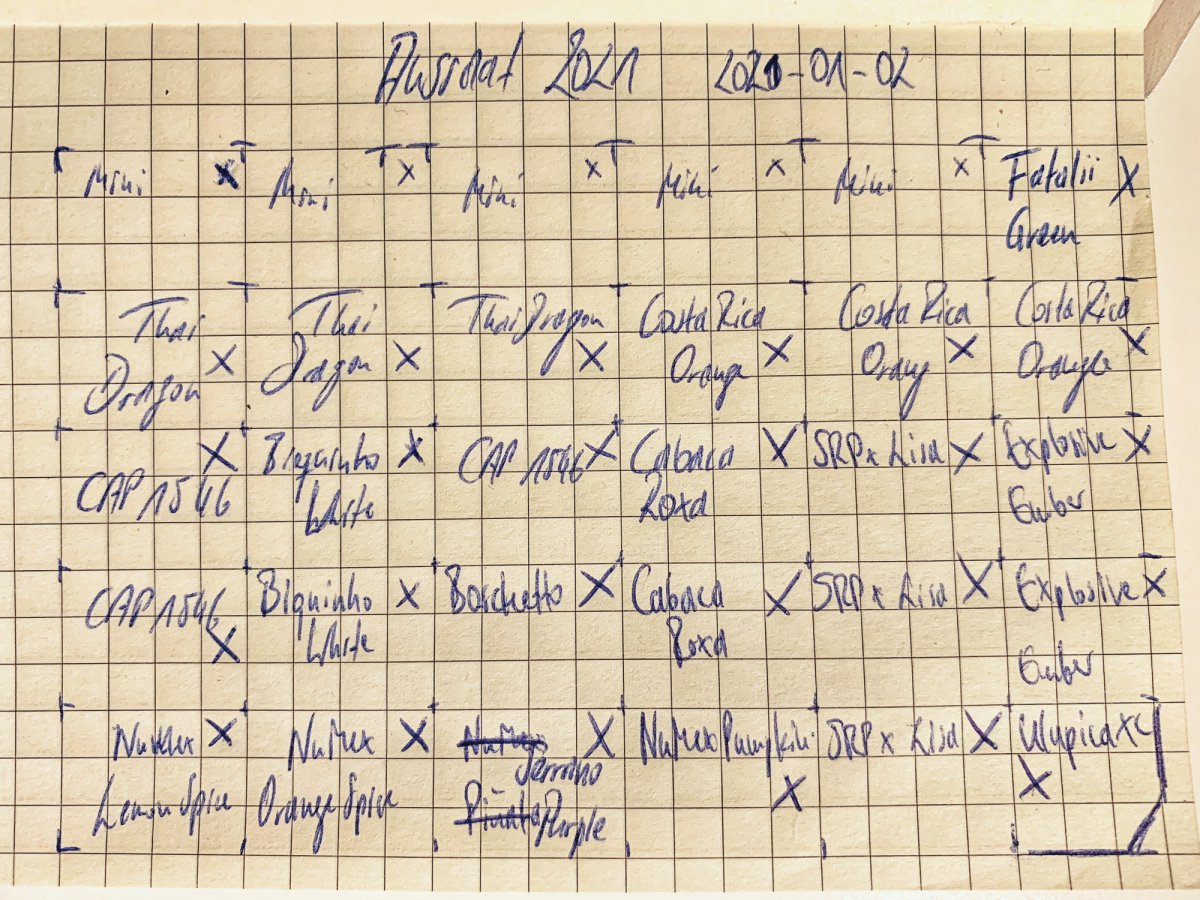 Aussaat 2021 2021-01-02
Mini x Mini x Mini x Mini x Mini x Fatalii x
Green
Thai Thai Thai Dragon Costa Rica Costa Rica Costa Rica
Dragon x Dragon x x Orange x Orang x Orange x
CAP 1546 x Biquinho x CAP 1546 x Cabaca x SRP x Lisa x Explosive x
White Roxa Ember
CAP 1546 Biquinho x x Cabaca x SRP x Lisa x Explosive x
x White Roxa Ember
NuMex x NuMex x NuMex x NuMex Pumpkin SRP x Lisa x Ulupica x C
Serrano x x
Lemon Spice Orange Spice Piñata Purple